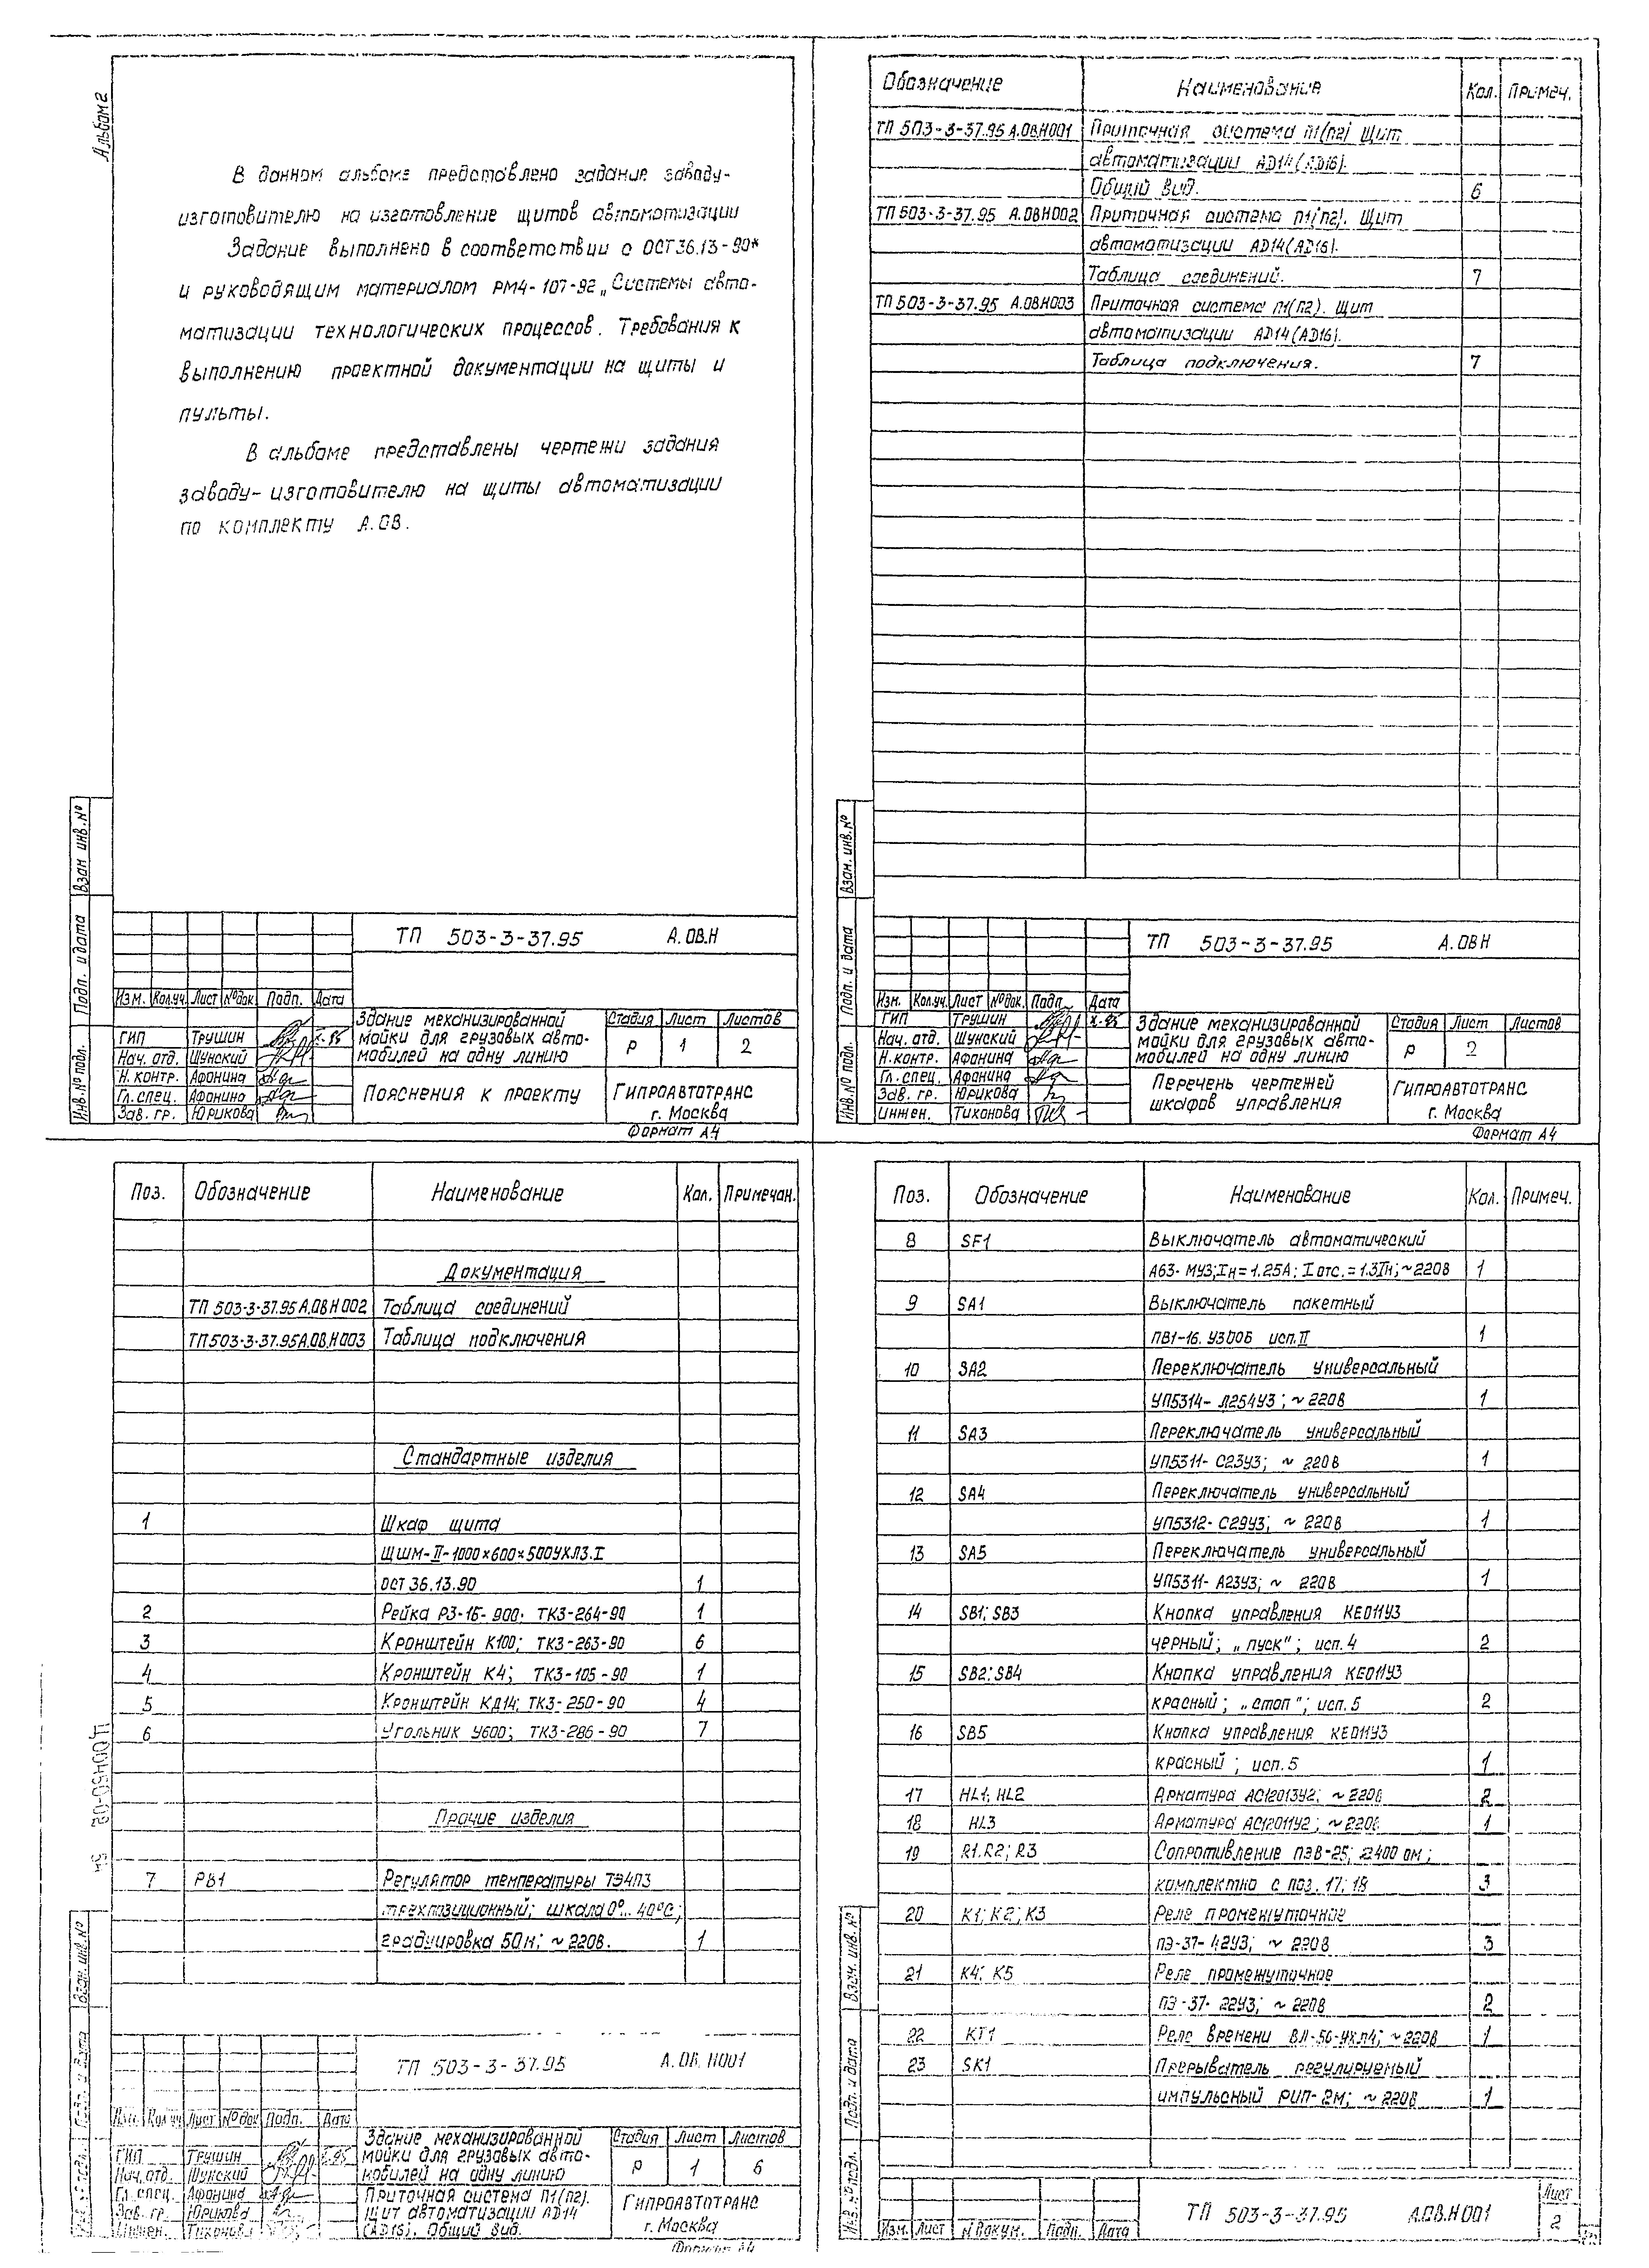 Альбом 2
В данном альбоме представлено задание заводу-
изготовителю на изготовление щитов автоматизации
Задание выполнено в соответствии с ОСТ 36.13-90*
и руководящим материалом РМ4-107-92 „Системы авто-
матизации технологических процессов. Требования к
выполнению проектной документации на щиты и
пульты.
В альбоме представлены чертежи задания
заводу-изготовителю на щиты автоматизации
по комплекту А.ОВ.
Взам инв.№
Подп. и дата
Инв.№ подл.
ТП 503-3-37.95 А.ОВ.Н
Изм. Кол.уч. Лист №док. Подп. Дата
ГИП Трушин X-95
Нач. отд. Шунский
Н.контр. Афонина
Гл.спец. Афонина
Зав. гр. Юрикова
Здание механизированной
мойки для грузовых авто-
мобилей на одну линию
Стадия Лист Листов
Р 1 2
Пояснения к проекту
ГИПРОАВТОТРАНС
г. Москва
Формат А4
Обозначение Наименование Кол. Примеч.
ТП 503-3-37.95 А.ОВ.Н001 Приточная система П1(П2) Щит
автоматизации AD14(AD16).
Общий вид. 6
ТП 503-3-37.95 А.ОВ.Н002 Приточная система П1(П2). Щит
автоматизации AD14(AD16).
Таблица соединений. 7
ТП 503-3-37.95 А.ОВ.Н003 Приточная система П1(П2). Щит
автоматизации AD14(AD16).
Таблица подключения. 7
Взам. инв.№
Подп. и дата
Инв.№ подл.
ТП 503-3-37.95 А.ОВ Н
Изм. Кол.уч. Лист №док. Подп. Дата
ГИП Трушин X-95
Нач. отд. Шунский
Н.контр. Афонина
Гл.спец. Афонина
Зав. гр. Юрикова
Инжен. Тихонова
Здание механизированной
мойки для грузовых авто-
мобилей на одну линию
Стадия Лист Листов
Р 2
Перечень чертежей
шкафов управления
ГИПРОАВТОТРАНС
г. Москва
Формат А4
Поз. Обозначение Наименование Кол. Примечан.
Документация
ТП 503-3-37.95 А.ОВ.Н 002 Таблица соединений
ТП 503-3-37.95 А.ОВ.Н 003 Таблица подключения
Стандартные изделия
1 Шкаф щита
ЩШМ-II-1000×600×500УХЛ3.I
ОСТ 36.13.90 1
2 Рейка Р3-16-900. ТК3-264-90 1
3 Кронштейн К100; ТК3-263-90 6
4 Кронштейн К4; ТК3-105-90 1
5 Кронштейн КД14; ТК3-250-90 4
6 Угольник У600; ТК3-286-90 7
Прочие изделия
7 РВ1 Регулятор температуры ТЭ4П3
трехпозиционный; шкала 0°...40°С;
градуировка 50М; ~220В. 1
Ц00460-02 34
Взам. инв.№
Подп. и дата
Инв.№ подл.
ТП 503-3-37.95 А.ОВ.Н001
Изм. Кол.уч Лист №док Подп. Дата
ГИП Трушин X-95
Нач.отд. Шунский
Гл. спец. Афонина
Зав. гр. Юрикова
Инжен. Тихонова
Здание механизированной
мойки для грузовых авто-
мобилей на одну линию
Стадия Лист Листов
Р 1 6
Приточная система П1(П2).
Щит автоматизации AD14
(AD16). Общий вид.
ГИПРОАВТОТРАНС
г. Москва
Формат А4
Поз. Обозначение Наименование Кол. Примеч.
8 SF1 Выключатель автоматический
А63-МУ3; Iн=1.25А; I отс.=1.3Iн; ~220В 1
9 SA1 Выключатель пакетный
ПВ1-16. У300Б исп.II 1
10 SA2 Переключатель универсальный
УП5314-Л254У3; ~220В 1
11 SA3 Переключатель универсальный
УП5311-С23У3; ~ 220В 1
12 SA4 Переключатель универсальный
УП5312-С29У3; ~ 220В 1
13 SA5 Переключатель универсальный
УП5311-А23У3; ~ 220В 1
14 SB1; SB3 Кнопка управления КЕ011У3
черный; „пуск"; исп.4 2
15 SB2; SB4 Кнопка управления КЕ011У3
красный; „стоп"; исп.5 2
16 SB5 Кнопка управления КЕ011У3
красный; исп.5 1
17 HL1; HL2 Арматура АС12013У2; ~220В 2
18 HL3 Арматура АС12011У2; ~220В 1
19 R1.R2; R3 Сопротивление ПЭВ-25; 2400 ом;
комплектно с поз. 17; 18 3
20 K1; K2; K3 Реле промежуточное
ПЭ-37-42У3; ~ 220В 3
21 K4; K5 Реле промежуточное
ПЭ-37-22У3; ~ 220В 2
22 KT1 Реле времени ВЛ-56-УХЛ4; ~220В 1
23 SK1 Прерыватель регулируемый
импульсный РИП-2М; ~ 220В 1
Взам. инв.№
Подп. и дата
Инв.№ подл.
Изм. Лист № Докум. Подп. Дата
ТП 503-3-37.95 А.ОВ.Н 001
Лист
2